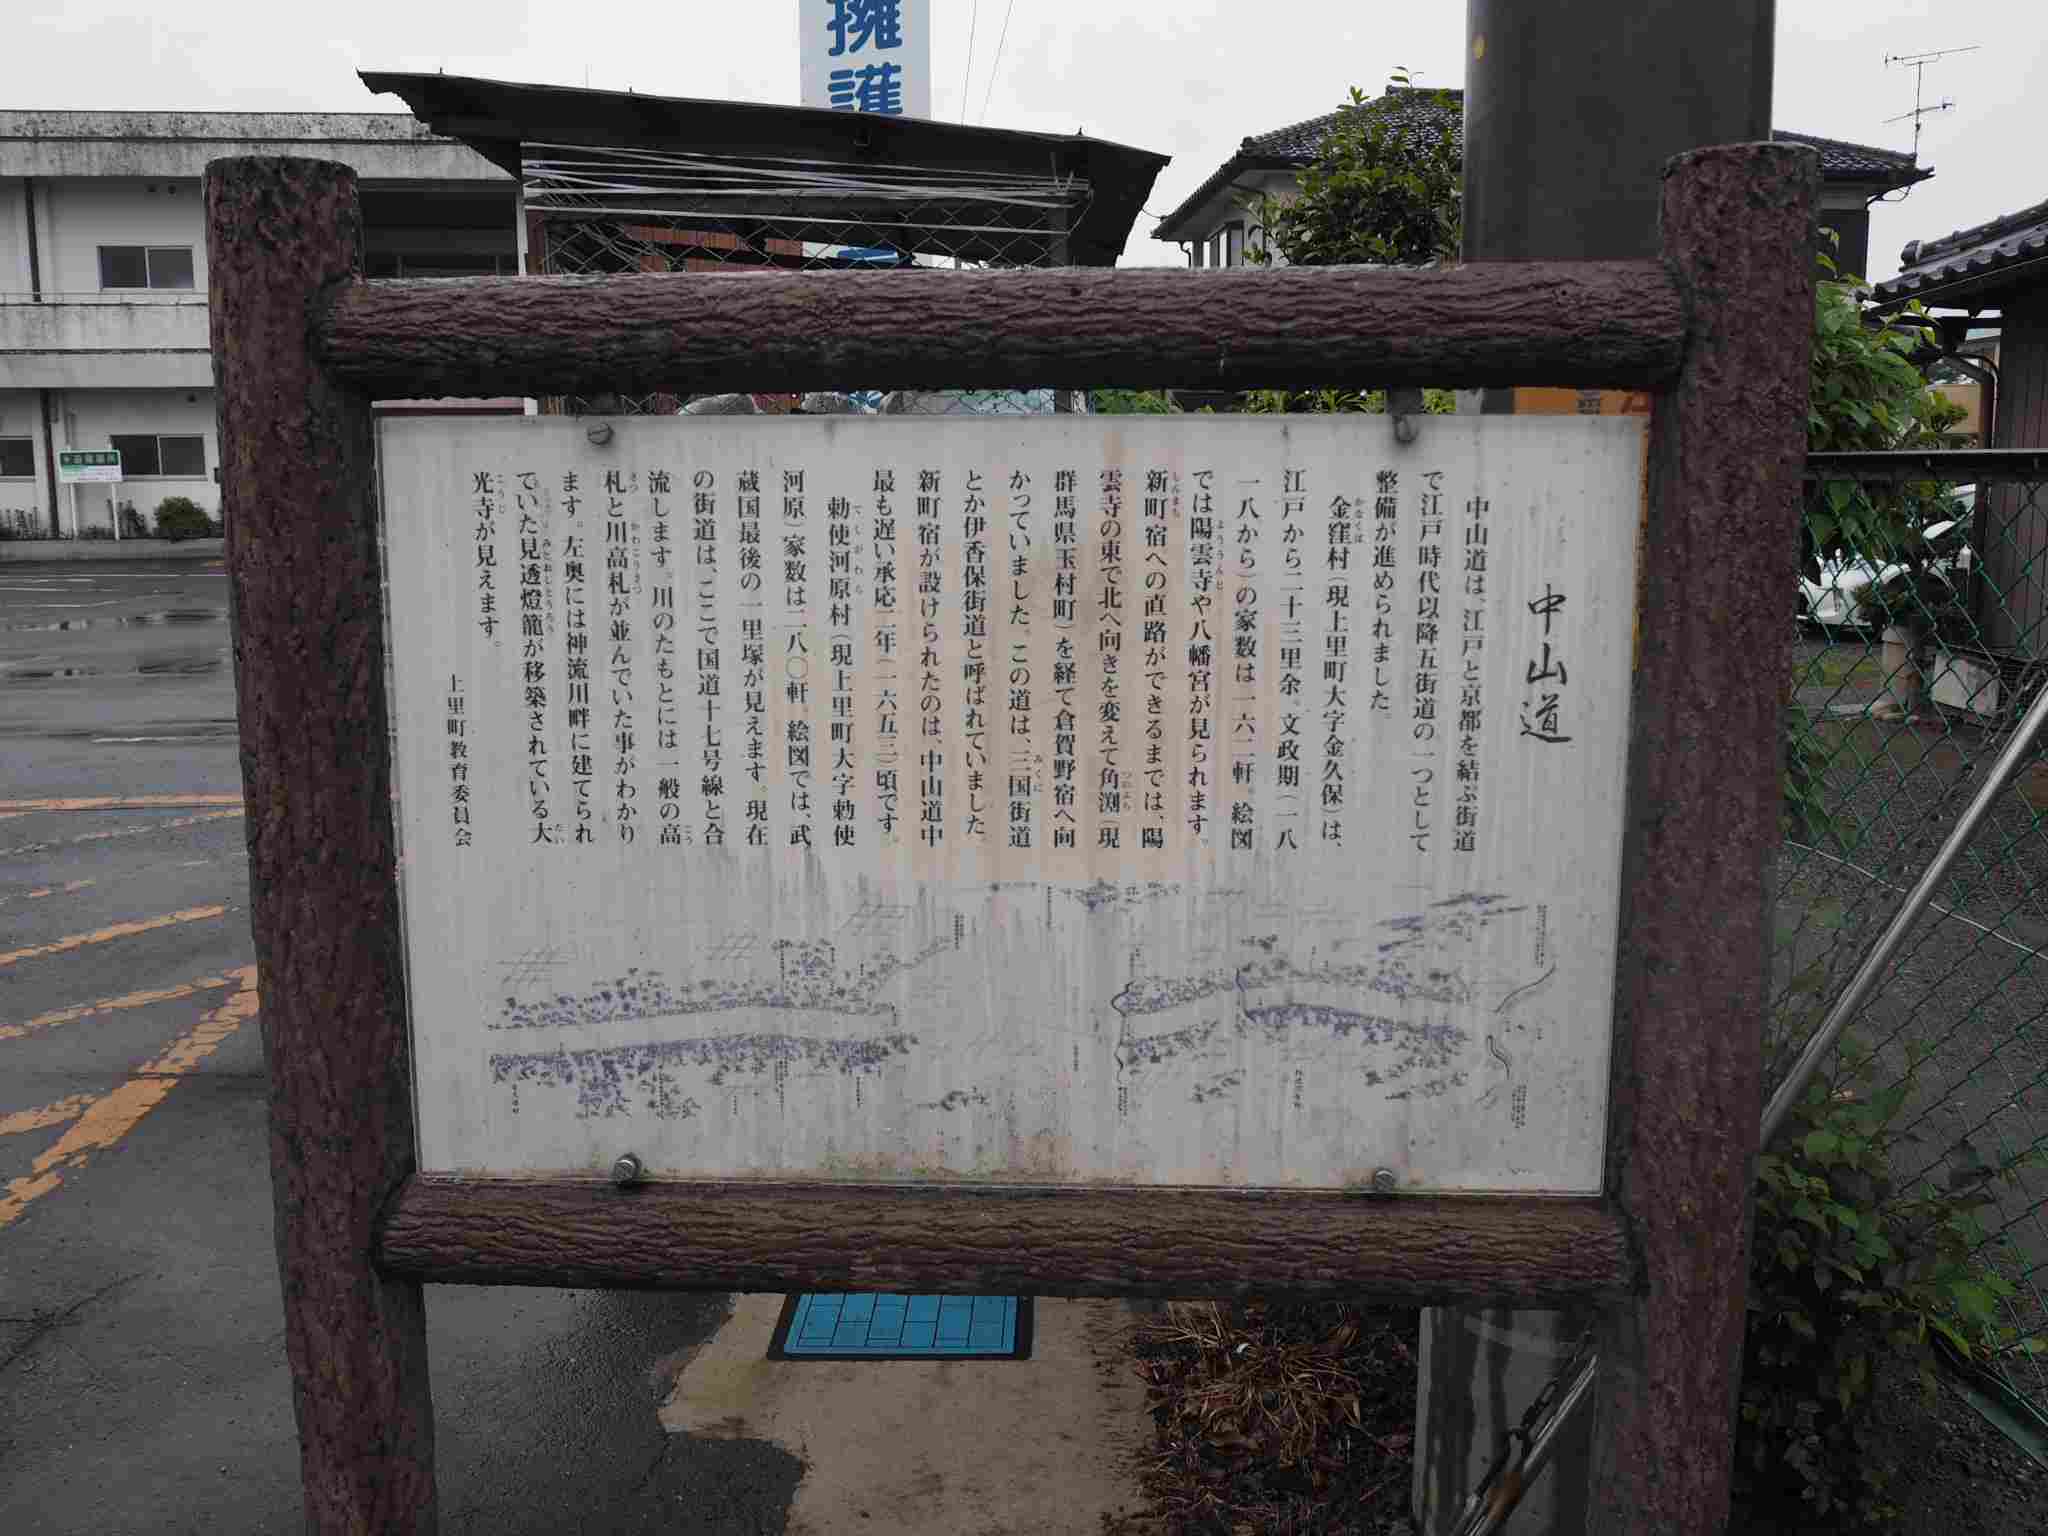 中山道
中山道は、江戸と京都を結ぶ街道
で江戸時代以降五街道の一つとして
整備が進められました。
金窪村（現上里町大字金久保）は、
かなくぼ
江戸から二十三里余。文政期（一八
一八から）の家数は一六二軒。絵図
では陽雲寺や八幡宮が見られます。
よううんじ
新町宿への直路ができるまでは、陽
しんまち
雲寺の東で北へ向きを変えて角渕（現
つのぶち
群馬県玉村町）を経て倉賀野宿へ向
かっていました。この道は、三国街道
みくに
とか伊香保街道と呼ばれていました。
新町宿が設けられたのは、中山道中
最も遅い承応二年（一六五三）頃です。
勅使河原村（現上里町大字勅使
てしがわら
河原）家数は二八〇軒。絵図では、武
蔵国最後の一里塚が見えます。現在
の街道は、ここで国道十七号線と合
流します。川のたもとには一般の高
こう
札と川高札が並んでいた事がわかり
さつ かわこうさつ
ます。左奥には神流川畔に建てられ
ていた見透燈籠が移築されている大
みとおしとうろう たい
光寺が見えます。
こうじ
上里町教育委員会
擁護